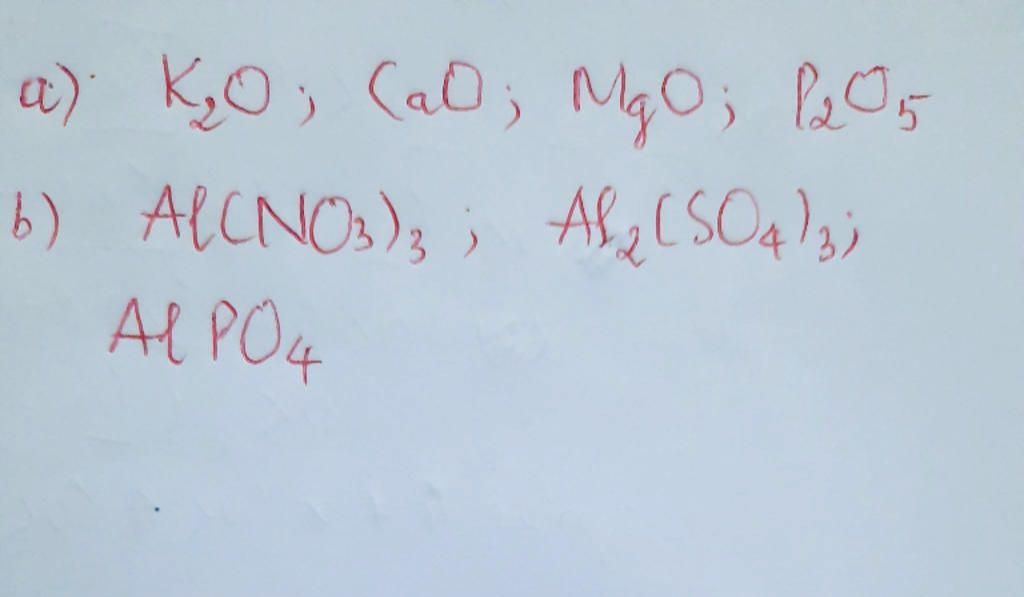 a) K₂O; CaO; MgO; P₂O₅
b) Al(NO₃)₃; Al₂(SO₄)₃;
AlPO₄